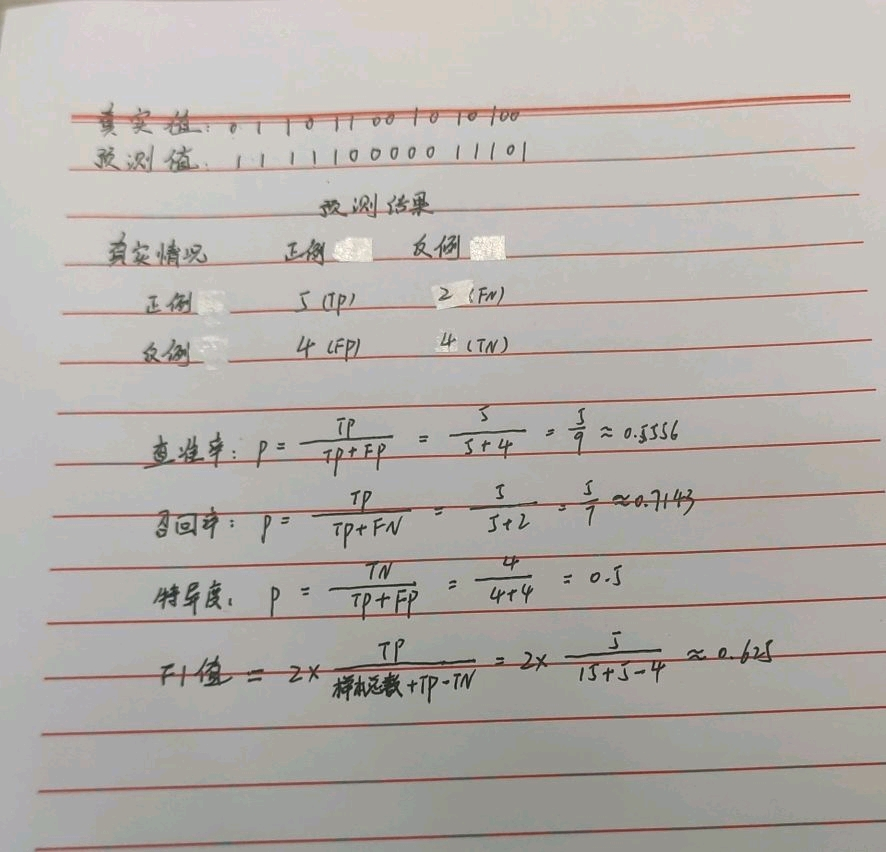 真实值: 0 1 1 0 1 1 0 0 1 0 1 0 1 0 0
预测值: 1 1 1 1 1 1 0 0 0 0 0 1 1 1 0 1
预测结果
真实情况 正例 反例
正例 5 (TP) 2 (FN)
反例 4 (FP) 4 (TN)
查准率: P = TP / TP+FP = 5 / 5+4 = 5/9 ≈ 0.5556
召回率: P = TP / TP+FN = 5 / 5+2 = 5/7 ≈ 0.7143
特异度: P = TN / TP+FP = 4 / 4+4 = 0.5
F1值 = 2× TP / 样本总数+TP-TN = 2× 5 / 15+5-4 ≈ 0.625